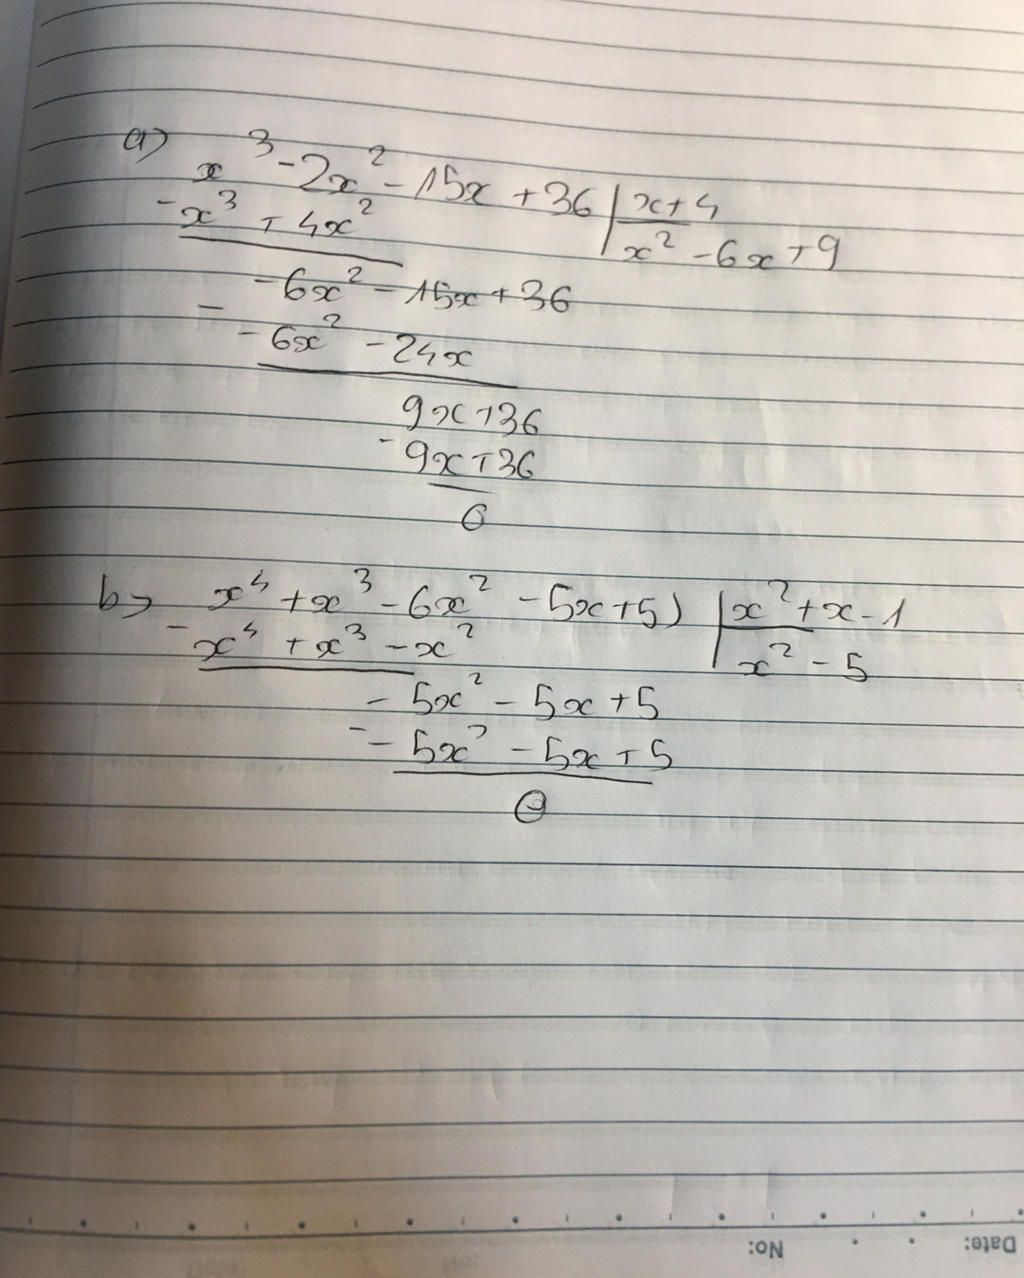 a) x³ - 2x² - 15x + 36 | x + 4
- x³ + 4x² | x² - 6x + 9
- 6x² - 15x + 36
- - 6x² - 24x
9x + 36
- 9x + 36
0
b) x⁴ + x³ - 6x² - 5x + 5) | x² + x - 1
- x⁴ + x³ - x² | x² - 5
- 5x² - 5x + 5
- - 5x² - 5x + 5
0
No:
Date: